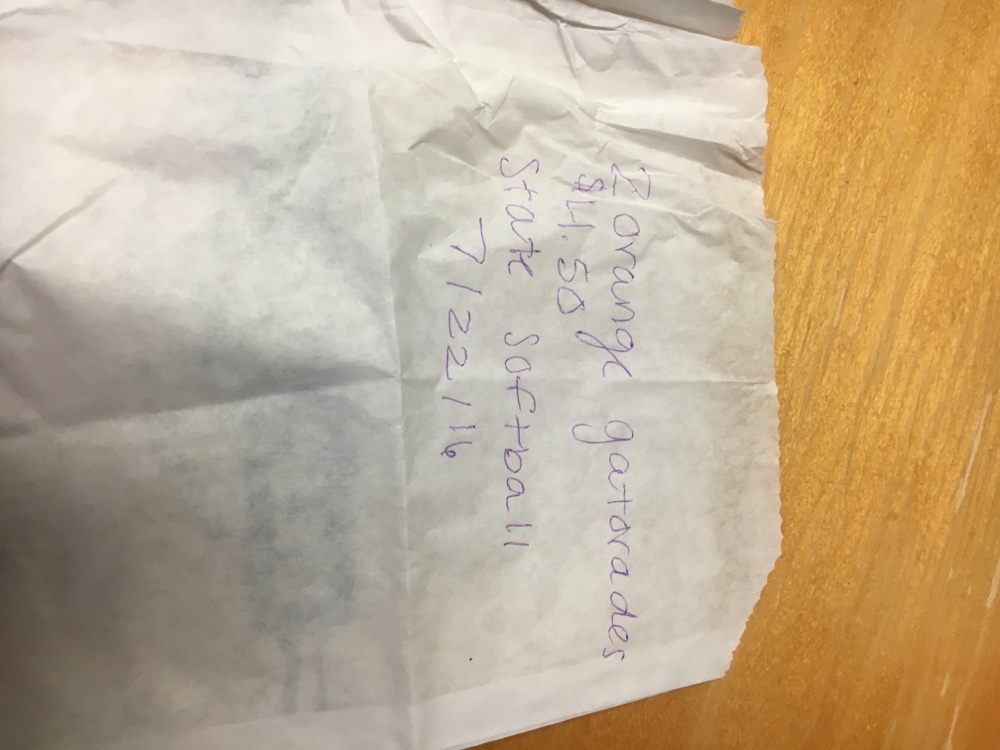 2 orange gatorades
$4.50
State softball
7/22/16